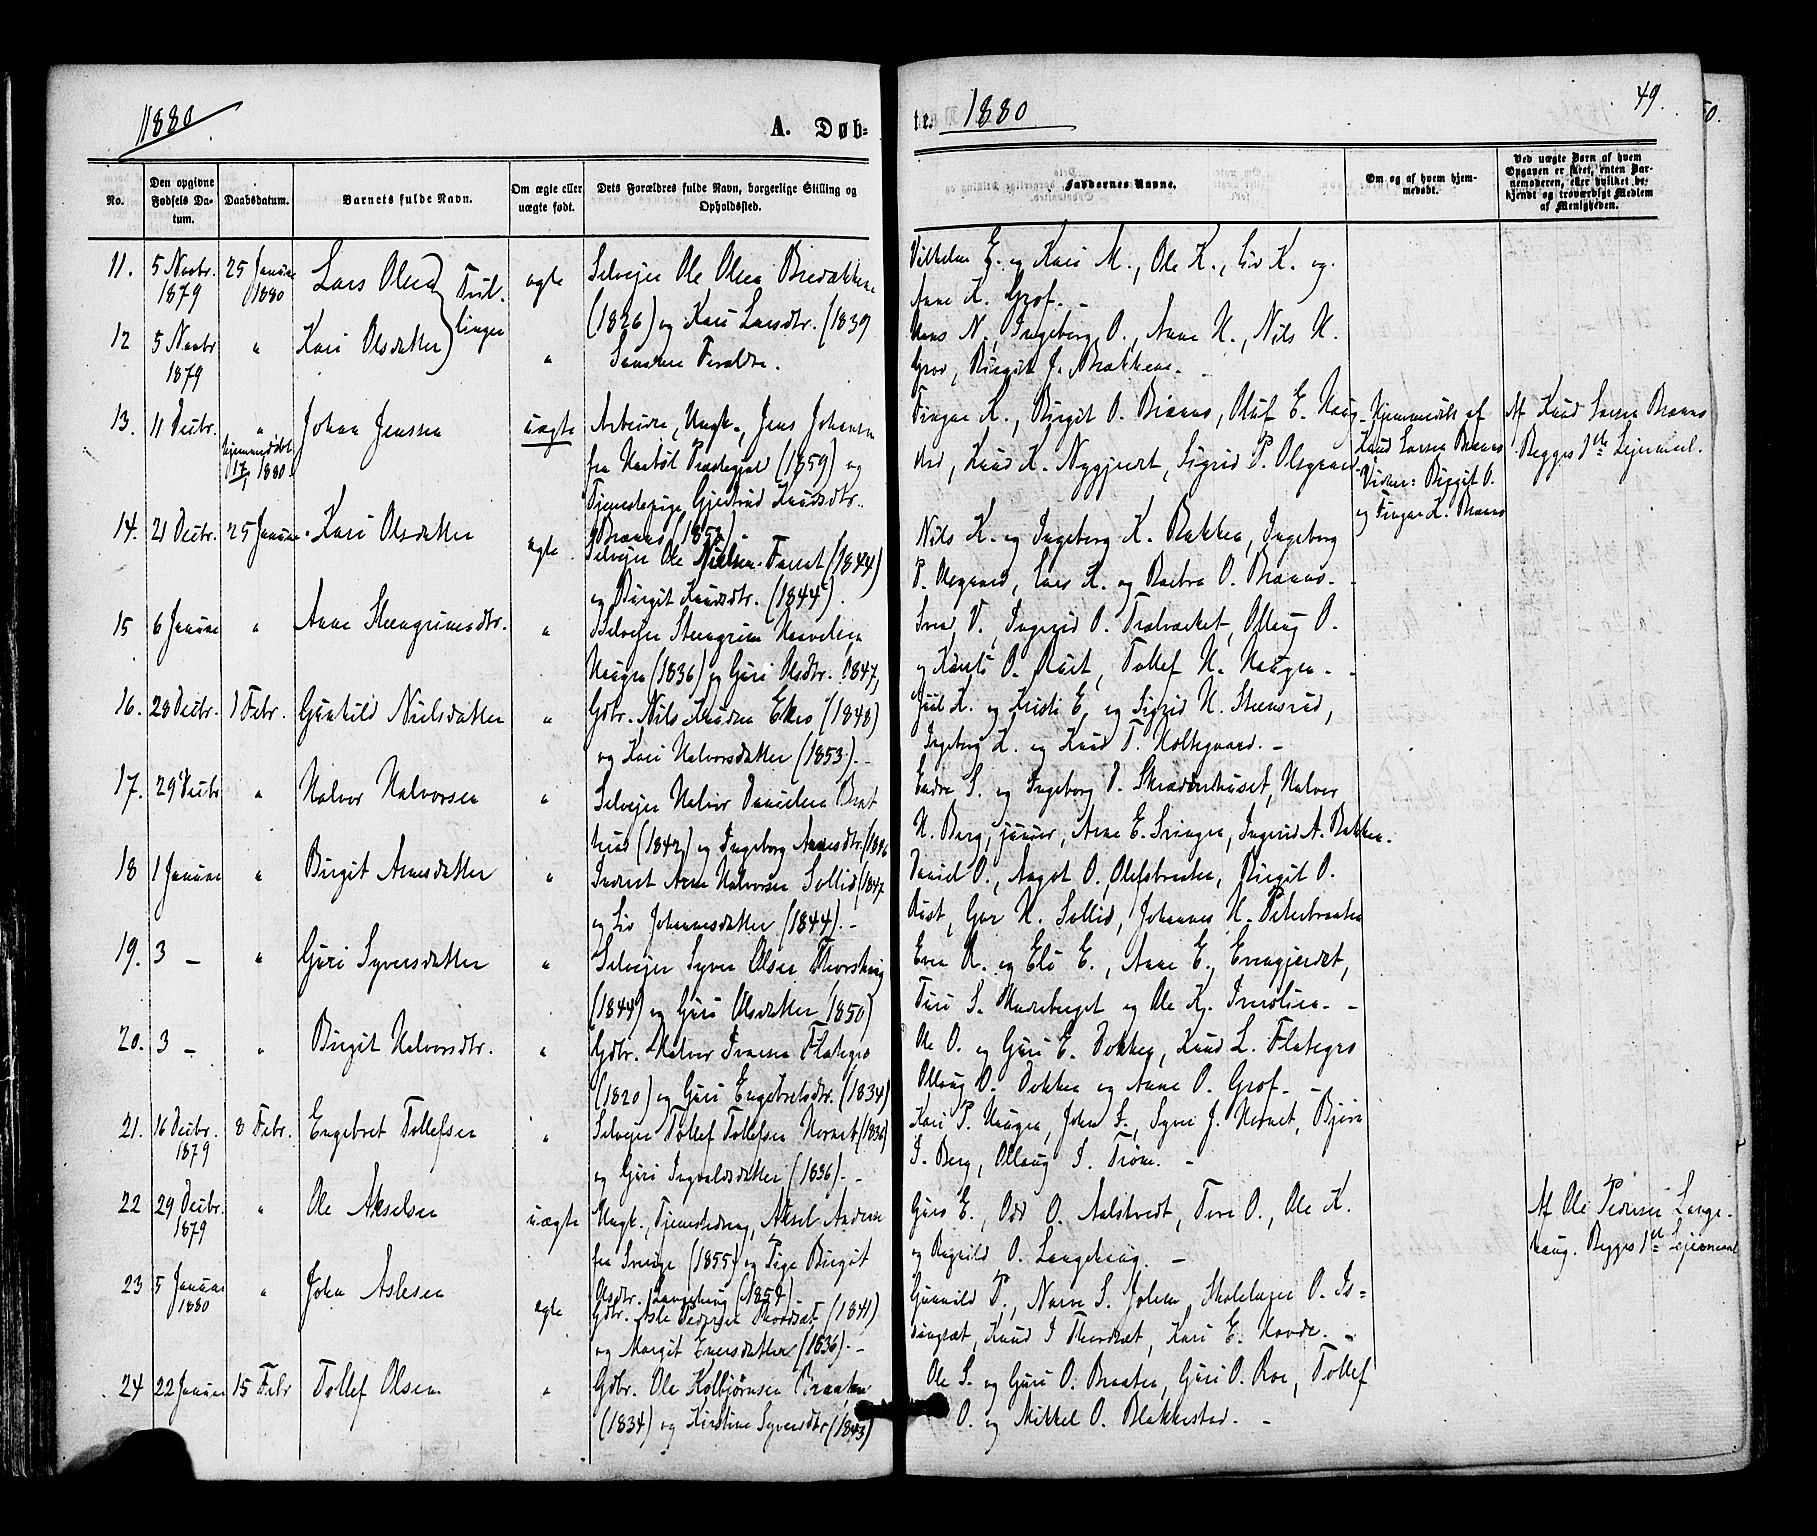 1880
A. Døb-
te. 1880
49.
50.
No.
Den opgivne Fødsels Da-tum.
Daabsdatum.
Barnets fulde Navn.
Om ægte eller uægte født.
Dets Forældres fulde Navn, borgerlige Stilling og Opholdssted.
Faddernes Navne.
Om og af hvem hjem-medøbt.
Ved uægte Børn af hvem Opgaven er skeet, enten Bar-nemoderen, eller hvilket be-kjendt og troværdigt Medlem af Menigheden.
11. 5 Novbr. 1879 25 Januar 1880 Lars Olsen Tvil- ægte Selveier Ole Olsen
(1826) og Kari Larsdtr. (1839
Vilhelm E. og Kari M., Ole K., Liv K. og
Anne K. Grof. -
12 5 Novbr 1879 " Kari Olsdatter linger " Samme Forældre.
Hans N., Ingeborg O., Anne N., Nils N.
Grov, Birgit J. Brækken. -
13. 11 Decbr. " Hjemmedøbt 17/1 1880. Johan Jenssen uægte Arbeider, Ungk., Jens Johansen
fra Præstegjeld (1859) og
Tjenestepige Gjertrud Knudsdtr.
(1853). -
K., Birgit O. , Oluf E. Haug-
K. Nygjerdet, Sigrid P. Olsgaard
Hjemmedøbt af
Knud Larsen
Vidner: Birgit O.
og K.
Af Knud Larsen
Begges 1ste Leiermaal.
14. 21 Decbr. 25 Januar Kari Olsdatter ægte Selveier Ole Nielsen (1844)
og Birgit Knudsdtr. (1844).
Nils K. og Ingeborg K. Bakken, Ingeborg
P. Olsgaard, Lars K. og Barbra O. -
15 6 Januar " Anne Steengrimsdtr. " Selveier Steengrim
Haugen (1836) og Guri Olsdtr. 1847,
Svend V., Ingerid O. , Ollaug O.
og O. Rust, Tollef N. Haugen. -
16. 28 Decbr. 1 Febr. Gunhild Nielsdatter " Gdbr. Nils Knudsen Ekro (1848)
og Kari Halvorsdatter (1853). -
Juul K. og Kristi E. og Sigrid N. Steensrud,
Ingeborg K. og Knud T. Holtegaard. -
17. 29 Decbr " Halvor Halvorsen " Selveier Halvor
(1842) og Ingeborg Arnesdtr. (1846
Endre S. og Ingeborg D. Skrædderhuset, Halvor
H. Berg, junior, Arne E. , Ingerid A. Bakken.
18 1 Januar " Birgit Arnesdatter " Inderst Arne Halvorsen Sollid (1847
og Liv Johannesdatter (1844). -
Daniel O., Aagot O. Olefsbraaten, Birgit O.
Rust, H. Sollid, Johannes H. Petersbraaten
19. 3 - " Guri Syversdatter " Selveier Syver Olsen Thorshaug
(1844) og Guri Olsdatter 1850)
Even R. og Eli E., Anne E. Evengjerdet,
Turi S. og Ole Kj. -
20. 3 - " Birgit Halvorsdtr. " Gdbr. Halvor Iversen Flategro
(1820) og Guri Engebretsdtr. (1834)
Ole O. og Guri E. Dokken, Knud L. Flategro
Ollaug O. Dokken og Anne O. Grof. -
21. 16 Decbr. 1879 8 Febr. Engebret Tollefsen " Selveier Tollef Tollefsen (1836)
og Guri Ingvaldsdatter (1836). -
Kari P. Haugen, John S., Syver J. , Bjørn
S. Berg, Ollaug S. -
22 29 Decbr. 1879 " Ole Akselsen uægte Ungk., Tjenestedreng, Aksel Andersen
fra Sverige (1855) og Pige Birgit
Olsdtr. Langehaug (1854) -
Guro E., Odd O. Aalstvedt, Tore O., Ole K.
og Ragnild O. Langehaug. -
Af Ole Pedersen Lange-
haug. Begges 1ste Leiermaal
23 5 Januar 1880 " John Aslesen ægte Gdbr. Asle Pedersen (1841)
og Margit Eversdatter (1836). -
Gunnild P., Narve S. , Skolelærer O. Is-
, Knud I. , Kari E. Hovde. -
24 22 Januar 15 Febr Tollef Olsen " Gdbr. Ole Kolbjørnsen Braaten
(1834) og Kirstine Syversdtr (1843)
Ole S. og Guri O. Braaten, Guri O. Roe, Tollef
O. og Mikkel O. Blakkestad. -